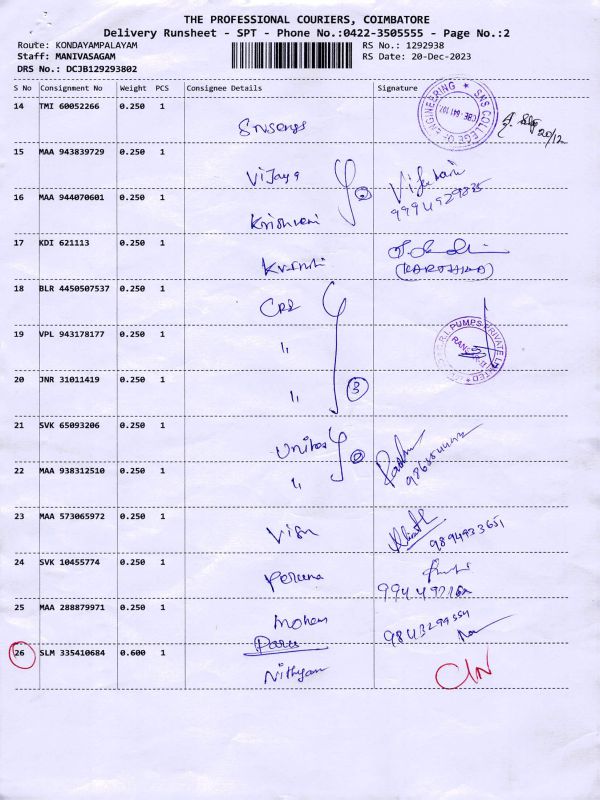 THE PROFESSIONAL COURIERS, COIMBATORE
Delivery Runsheet - SPT - Phone No.:0422-3505555 - Page No.:2
Route: KONDAYAMPALAYAM RS No.: 1292938
Staff: MANIVASAGAM RS Date: 20-Dec-2023
DRS No.: DCJB129293802
S No Consignment No Weight PCS Consignee Details Signature
14 TMI 60052266 0.250 1
SNS COLLEGE OF ENGINEERING
CBE-641 107
20/12
15 MAA 943839729 0.250 1
Vijaya
16 MAA 944070601 0.250 1
Krishveni
17 KDI 621113 0.250 1
(KARTHIKA)
18 BLR 4450507537 0.250 1
CRI
19 VPL 943178177 0.250 1
"
R.I. PUMPS PRIVATE LIMITED
20 JNR 31011419 0.250 1
" 3
21 SVK 65093206 0.250 1
22 MAA 938312510 0.250 1
"
23 MAA 573065972 0.250 1
9894933651
24 SVK 10455774 0.250 1
25 MAA 288879971 0.250 1
Mohan
26 SLM 335410684 0.600 1
Nithyam